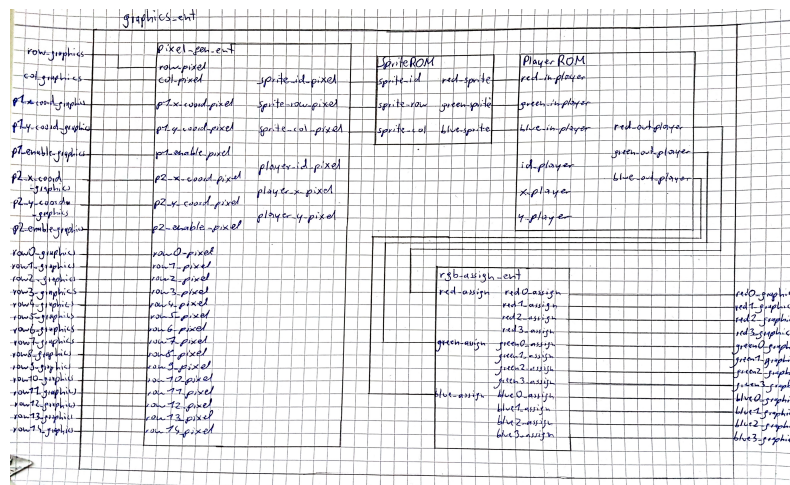 graphics_ent
row_graphics
col_graphics
p1_x_coord_graphics
p1_y_coord_graphics
p1_enable_graphics
p2_x_coord
_graphics
p2_y_coord
_graphics
p2_enable_graphics
row0_graphics
row1_graphics
row2_graphics
row3_graphics
row4_graphics
row5_graphics
row6_graphics
row7_graphics
row8_graphics
row9_graphics
row10_graphics
row11_graphics
row12_graphics
row13_graphics
row14_graphics
pixel_gen_ent
row_pixel
col_pixel
p1_x_coord_pixel
p1_y_coord_pixel
p1_enable_pixel
p2_x_coord_pixel
p2_y_coord_pixel
p2_enable_pixel
row0_pixel
row1_pixel
row2_pixel
row3_pixel
row4_pixel
row5_pixel
row6_pixel
row7_pixel
row8_pixel
row9_pixel
row10_pixel
row11_pixel
row12_pixel
row13_pixel
row14_pixel
sprite_id_pixel
sprite_row_pixel
sprite_col_pixel
player_id_pixel
player_x_pixel
player_y_pixel
SpriteROM
sprite_id red_sprite
sprite_row green_sprite
sprite_col blue_sprite
PlayerROM
red_in_player
green_in_player
blue_in_player
id_player
x_player
y_player
red_out_player
green_out_player
blue_out_player
rgb_assign_ent
red_assign red0_assign
red1_assign
red2_assign
red3_assign
green_assign green0_assign
green1_assign
green2_assign
green3_assign
blue_assign blue0_assign
blue1_assign
blue2_assign
blue3_assign
red0_graphi
red1_graphi
red2_graphi
red3_graphi
green0_graph
green1_graph
green2_graph
green3_graph
blue0_graphi
blue1_graphi
blue2_graphi
blue3_graphi